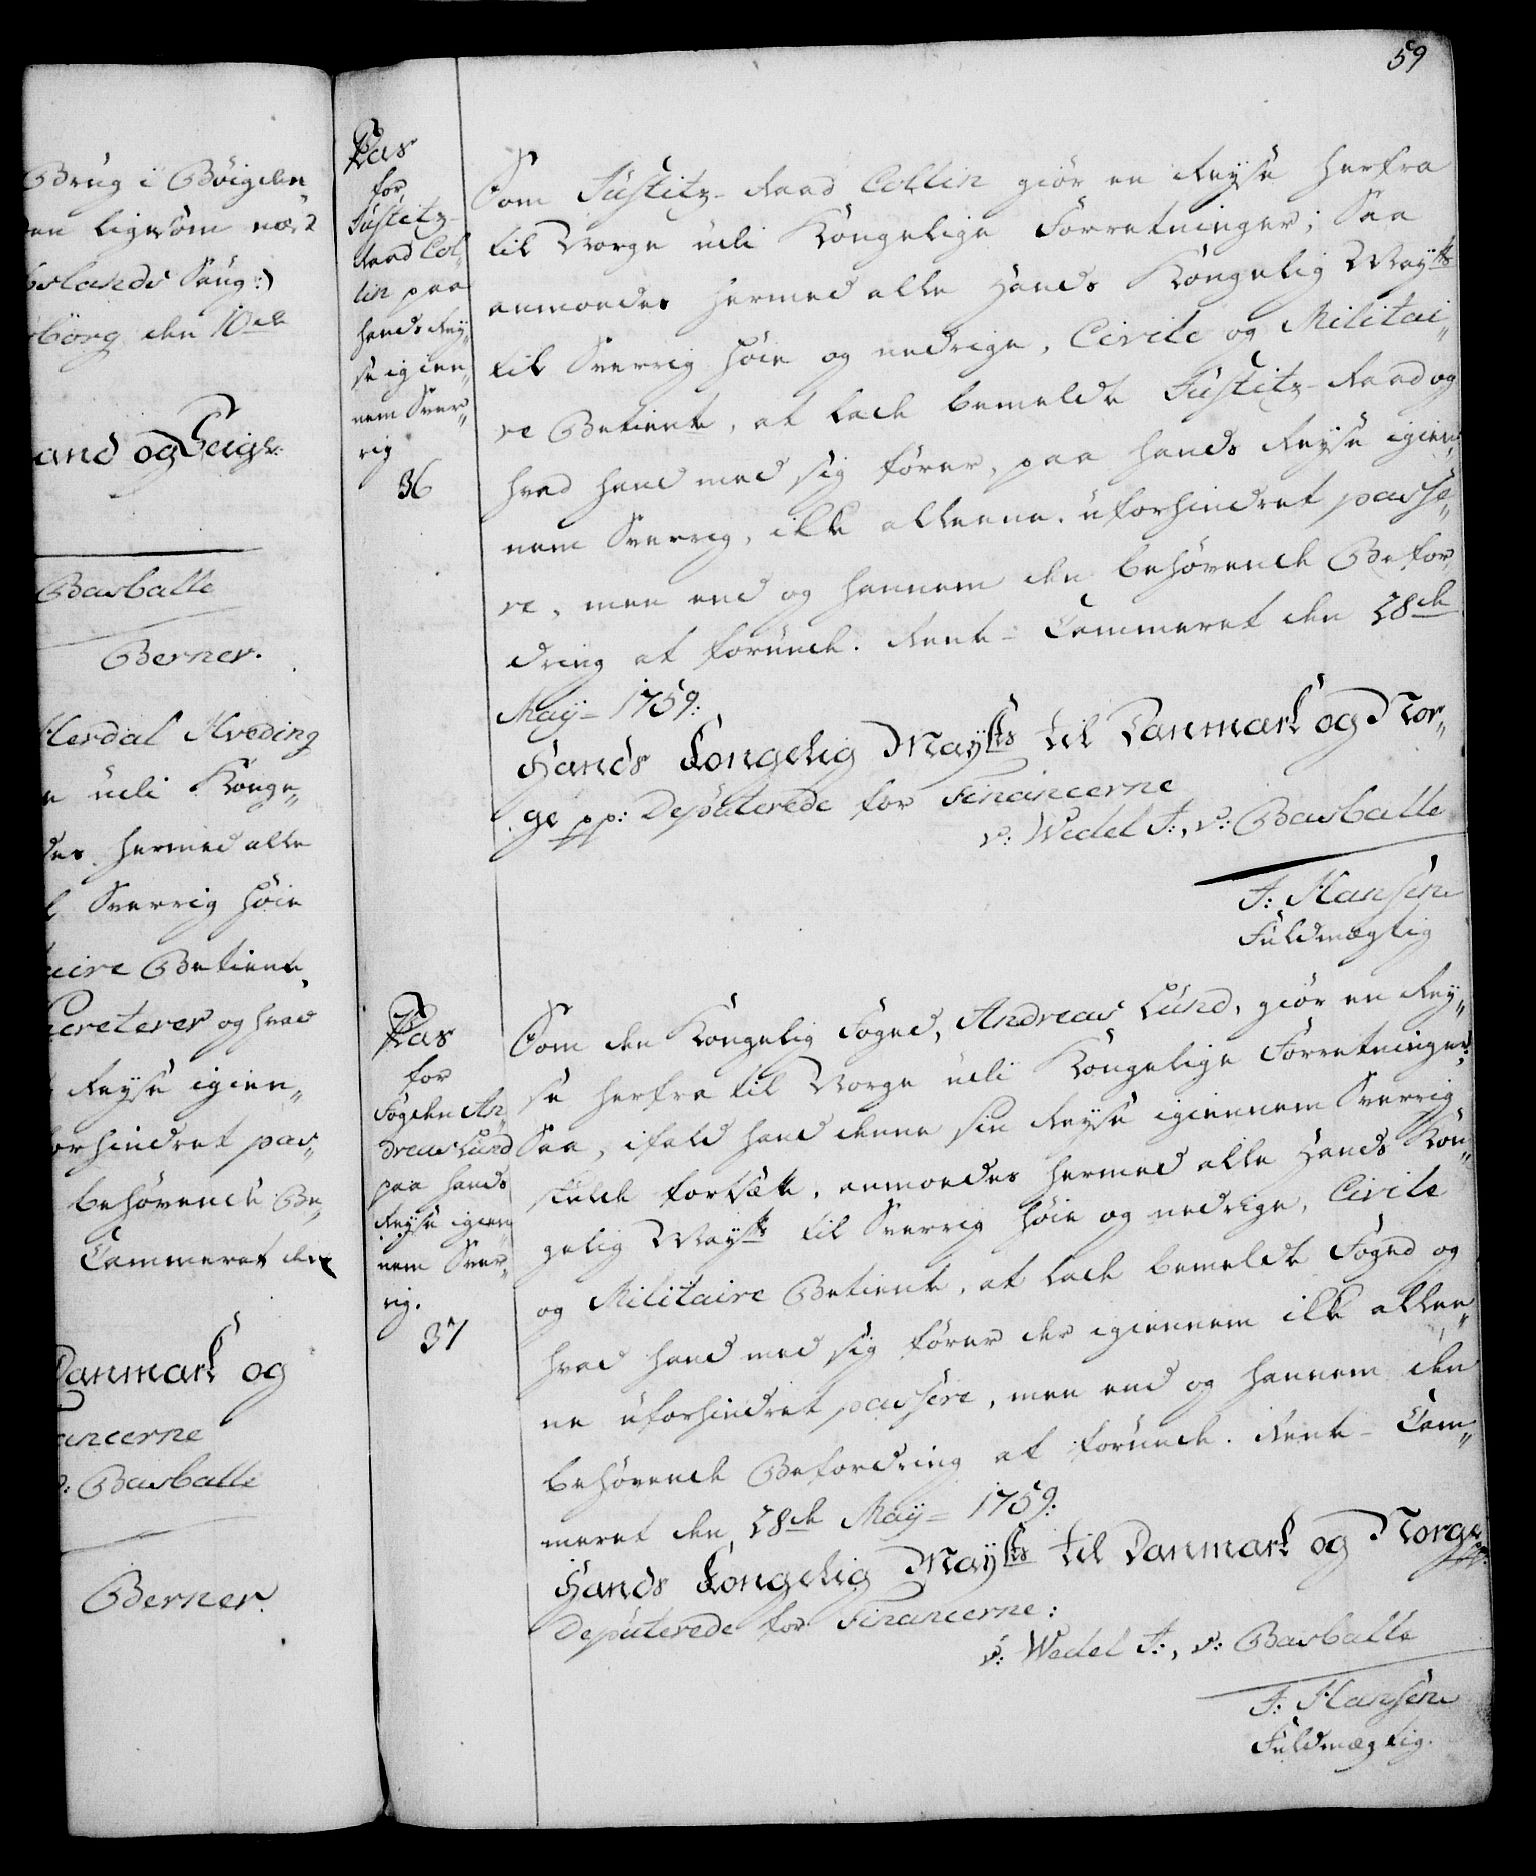 59
Brug i Böigden
den ligesom ned
oslands Saug:)
borg den 10de
and og Leigl:
Barballe
Berner.
Herdal Hveding
udi Konge„
des hermed alle
Sverrig höie
aire Betiente
Secreterer og hvad
Reyse igien„
forhindret pas„
behövende Be„
Cammeret den
Danmark og
ancerne
v: Barballe
Berner.
Pas
for
Justitz-
Raad Col„
lin paa
hands Rey„
se igien„
nem Sver„
rig
36
Som Justitz-Raad Collin giör en Reyse herfra
til Norge udi Kongelige Forretninger; Saa
anmodes hermed alle Hands Kongelig Mayts
til Sverrig höie og nedrige, Civile og Militai„
re Betiente, at lade bemeldte Justitz-Raad og
hvad hand med sig förer, paa hands Reyse igien„
nem Sverrig, ikke alleene uforhindret passe„
re, men end og hannem den behövende Befor„
dring at forunde. Rente-Cammeret den 28de
May= 1759:
Hands Kongelig Mayts til Danmark og Nor„
ge pp: Deputerede for Financerne
v: Wedel F:, v: Barballe
F: Hansen
Fuldmægtig
Pas
for
Fogden An„
dreas Lund
paa hands
Reyse igien„
nem Sver„
rig.
37
Som den Kongelig Foged, Andreas Lund, giör en Rey„
se herfra til Norge udi Kongelige Forretninger;
Saa, ifald hand denne sin Reyse igiennem Sverrig
skulde fortsætte, anmodes hermed alle Hands Kon„
gelig Mayts til Sverrig höie og nedrige, Civile
og Militaire Betiente, at lade bemeldte Foged og
hvad hand med sig förer der igiennem ikke allee„
ne uforhindret passere, men end og hannem den
behövende Befordring at forunde. Rente-Cam„
meret den 28de May= 1759:
Hands Kongelig Mayts til Danmark og Norge pp:
Deputerede for Financerne:
v: Wedel F:, v: Barballe
F: Hansen
Fuldmægtig.